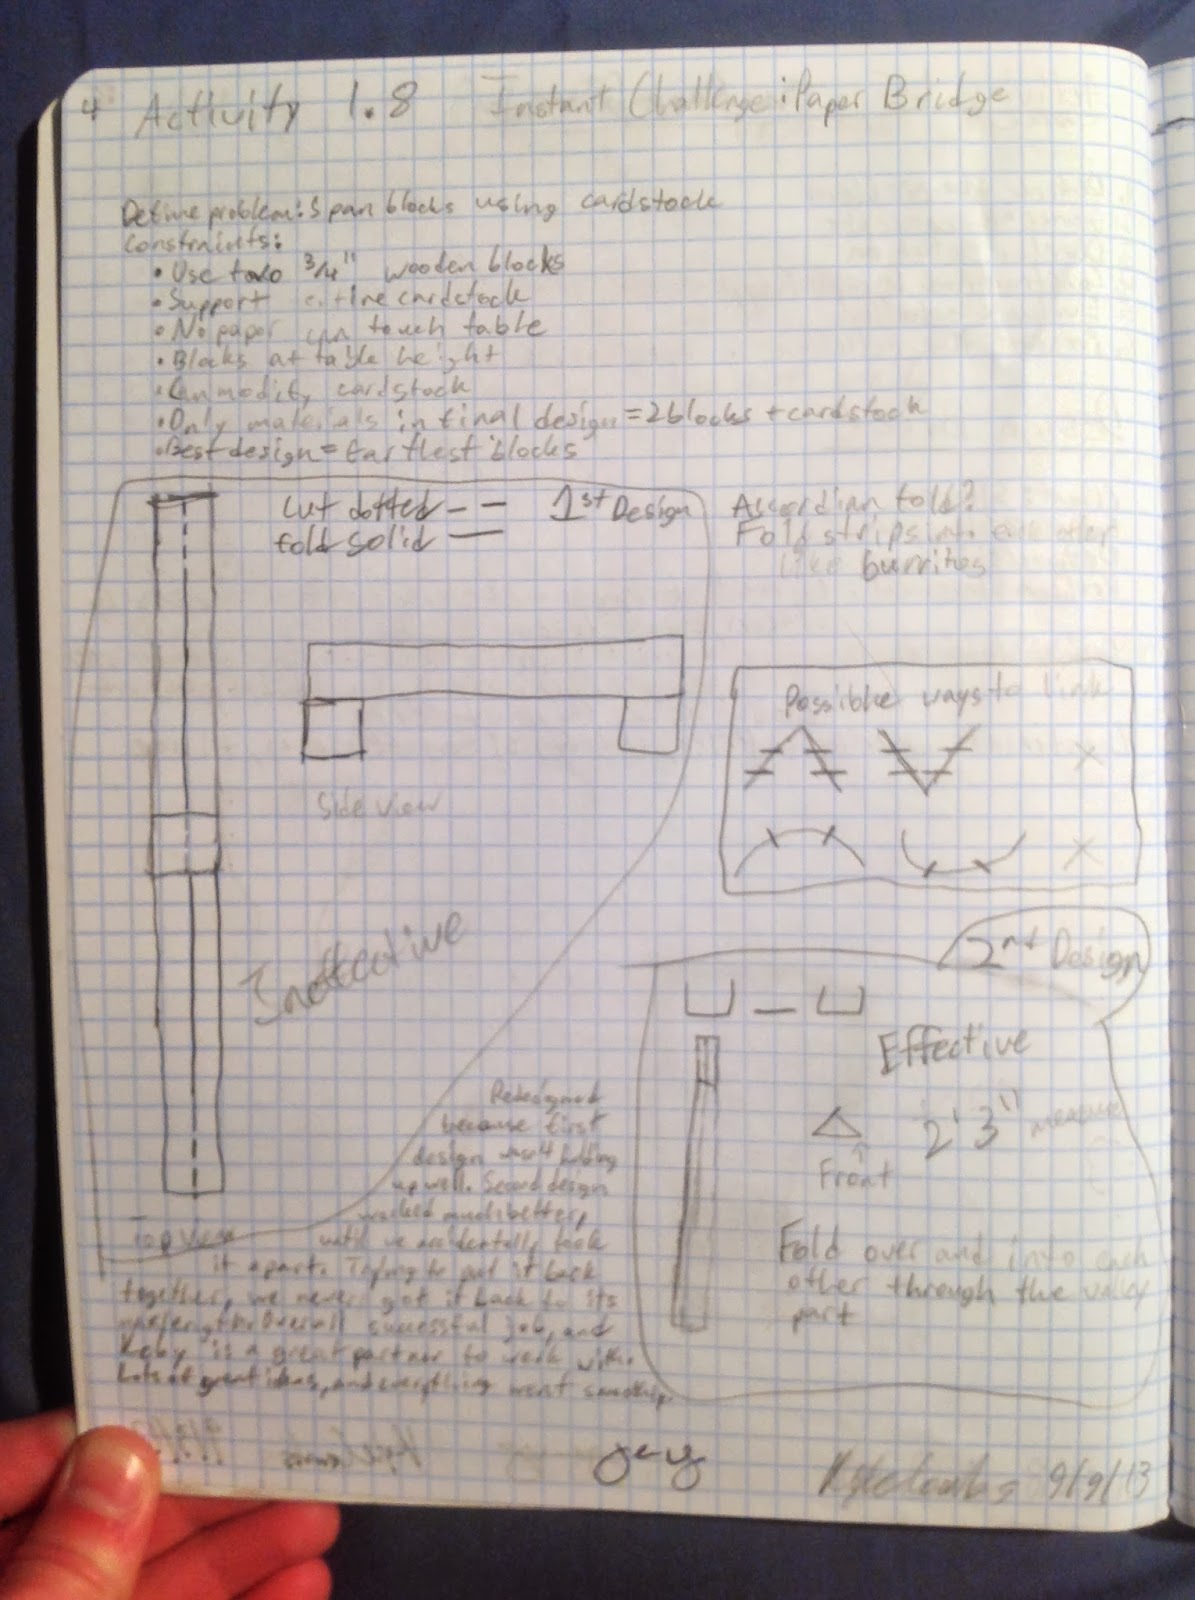 4 Activity 1.8 Instant Challenge: Paper Bridge
Define problem: Span blocks using cardstock
Constraints:
• Use two 3/4" wooden blocks
• Support entire cardstock
• No paper can touch table
• Blocks at table height
• Can modify cardstock
• Only materials in final design = 2 blocks + cardstock
• Best design = farthest blocks
Cut dotted – –
fold solid —
1st Design
Accordian fold?
Fold strips into each other
like burritos
Side view
Ineffective
Top View
Possible ways to link
2nd Design
Effective
2' 3"
Front
Fold over and into each
other through the valley
part
Redesigned
because first
design wasn't holding
up well. Second design
worked much better,
until we accidentally took
it apart. Trying to put it back
together, we never got it back to its
Overall successful job, and
Koby is a great partner to work with.
Lots of great ideas, and everything went smoothly
9/9/13